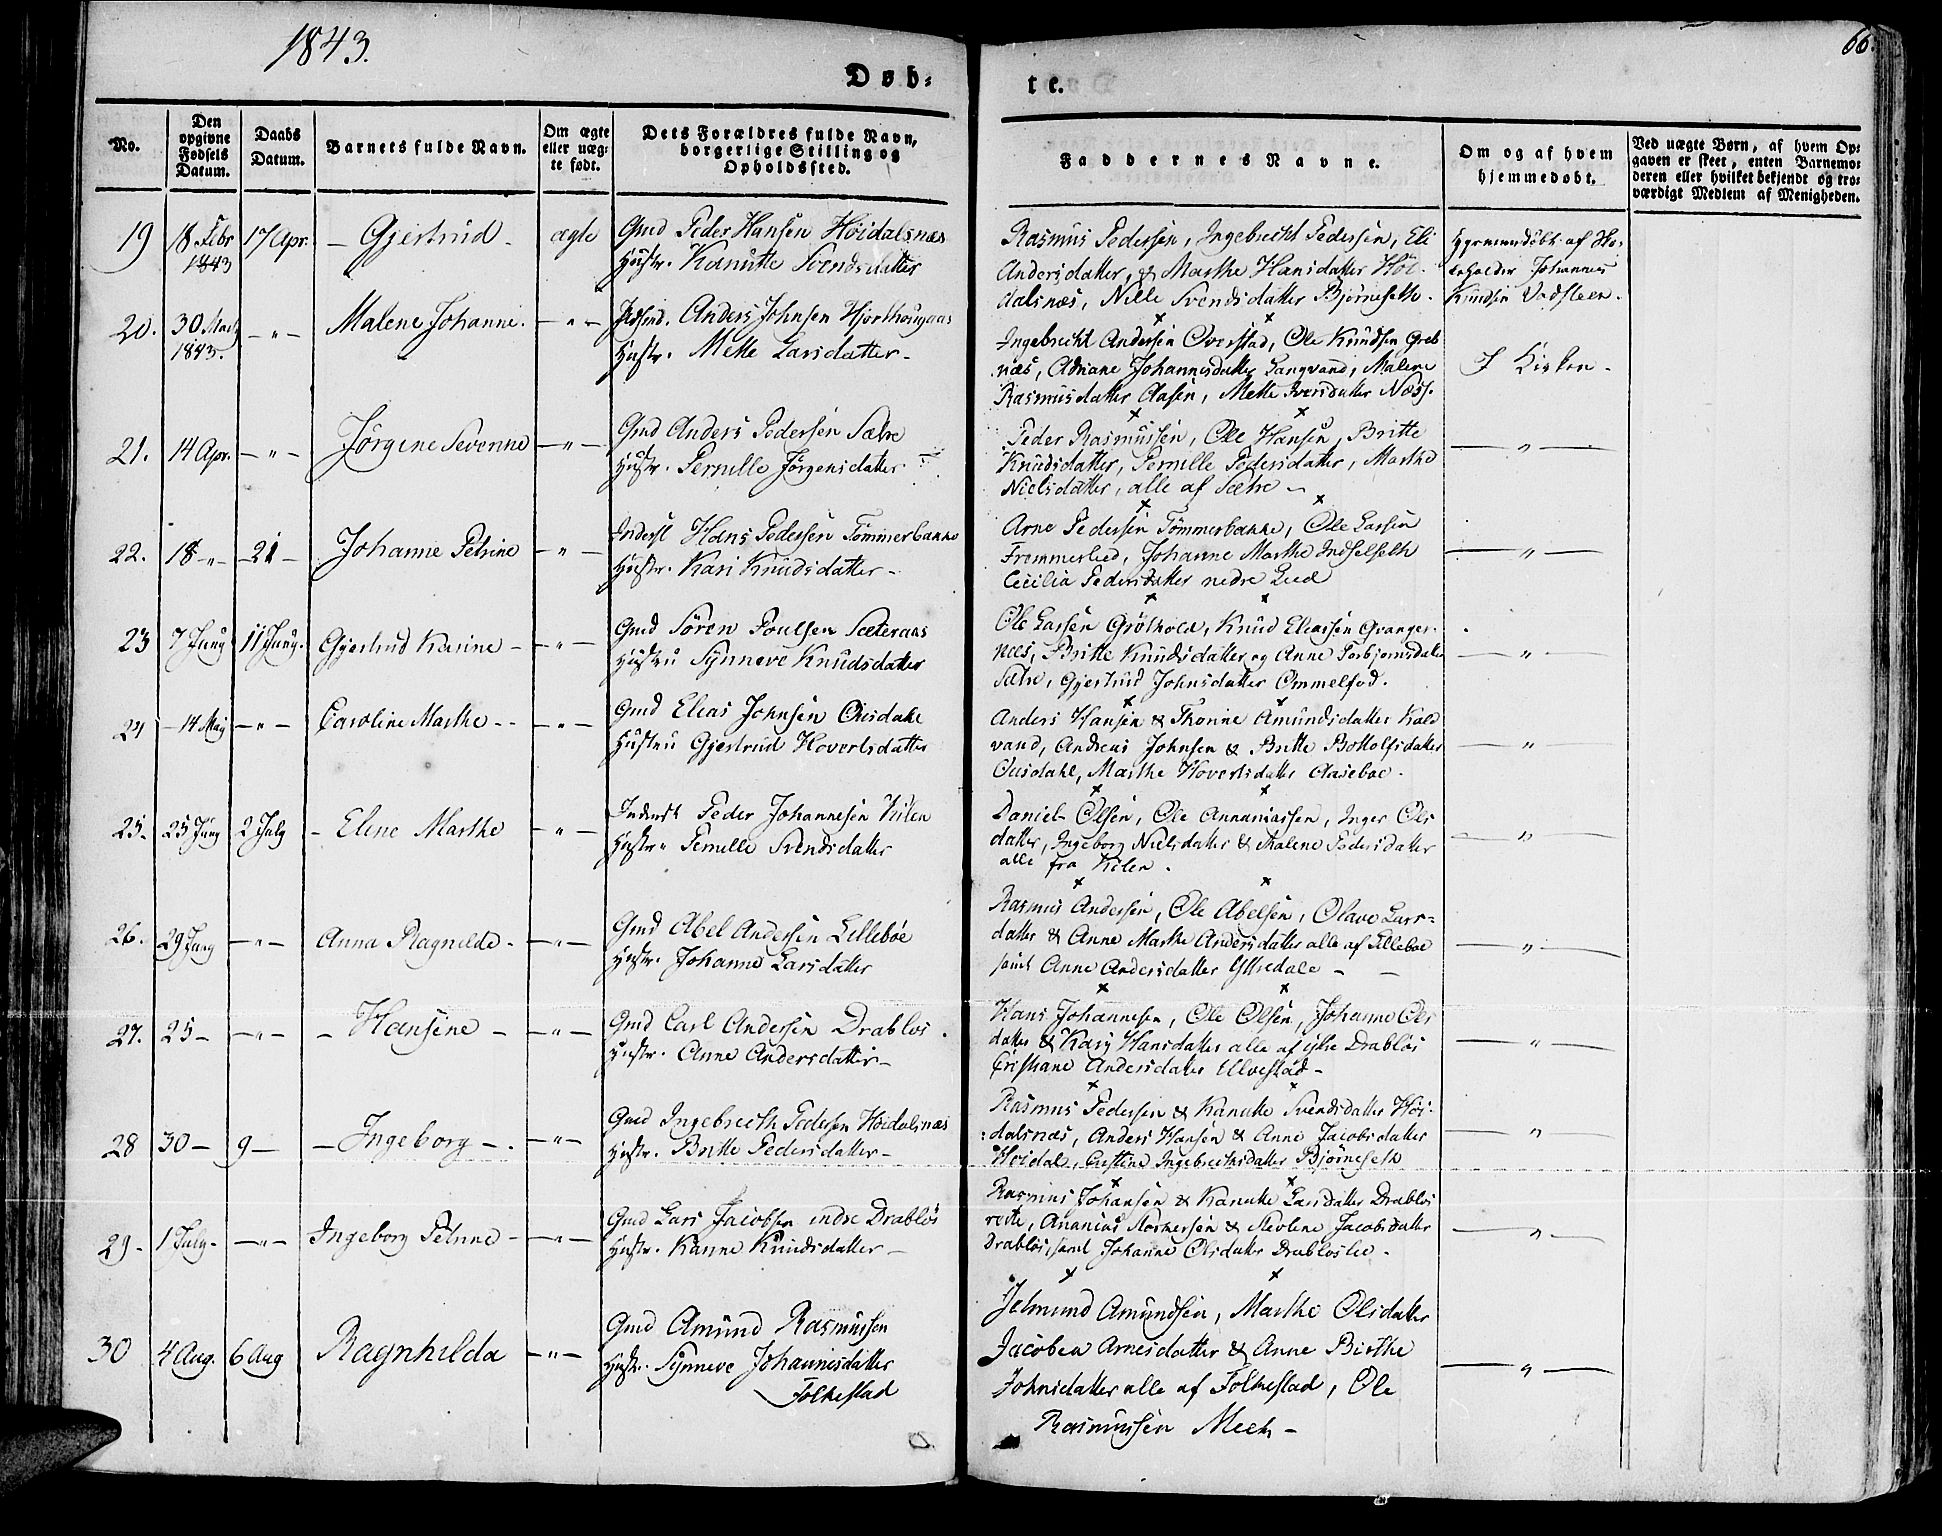 1843.
66.
Døb=
te.
No.
Den opgivne Fødsels Datum.
Daabs Datum.
Barnets fulde Navn.
Om ægte eller uæg- te født.
Dets Forældres fulde Navn, borgerlige Stilling og Opholdssted.
Faddernes Navne.
Om og af hvem hjemmedøbt.
Ved uægte Børn, af hvem Op= gaven er skeet, enten Barnemo= deren eller hvilket bekjendt og tro= værdigt Medlem af Menigheden.
19 18 Febr 1843 17 Apr. - Gjertrud - ægte
Gmd Peder Hansen Höidalsnæs
Hustr. Kanutte Svendsdatter
Rasmus Pedersen, Ingebrecht Pedersen, Eli
Andersdatter, & Marthe Hansdatter Höi-
dalsnæs, Nille Svendsdatter Bjørneseth.
Hjemmedöbt af
Johannes
Knudsen Vadsteen.
20. 30 Marts 1843. -"- Malene Johanne. -"-
Anders Johnsen Hjorthougaas
Hustr. Mette Larsdatter -
Ingebrecht Andersen Overstad, Ole Knudsen Greb
næs, Adriane Johannesdatter Langvand, Malene
Rasmusdatter Aasen, Mette Iversdatter Næss.
I Kirken -
21. 14 Apr. -"- Jörgene Severine -"-
Gmd Anders Pedersen Sætre
Hustr. Pernille Jörgensdatter -
Peder Rasmussen, Ole Hansen, Britte
Knudsdatter, Pernille Pedersdatter, Marthe
Nielsdatter, alle af Sætre -
-"-
22. 18 -"- 21 - Johanne Petrine -"-
Inderst Hans Pedersen Tömmerbakke
Hustr. Kari Knudsdatter -
Arne Pedersen Tömmerbakke, Ole Larsen
Fremmerlied, Johanne Marthe Indselseth
Cicilia Pedersdatter nedre Lied
-"-
23 7 Juny 11 Juny. Gjertrud Karine - -"-
Gmd Sören Poulsen Sæteraas
Hustru Synneve Knudsdatter
Ole Larsen Gröthold, Knud Eliassen Qvanger-
næs, Britte Knudsdatter og Anne Torbjornsdatter
Sætre, Gjertrud Johnsdatter Ommelfod.
-"-
24 -14 Maj -"- Caroline Marthe -- -"-
Gmd Elias Johnsen Ousdahl
Hustru Gjertrud Hovertsdatter
Anders Hansen & Thorine Amundsdatter Kald
vand, Andreas Johnsen & Britte Bottolfsdatter
Ousdahl, Marthe Hovertsdatter Aaseboe.
-"-
25. 25 Juny 2 July - Eline Marthe -"-
Inderst Peder Johannesen Kilen
Hustru Pernille Svendsdatter
Daniel Olsen, Ole Annaniassen, Inger Ols
datter, Ingeborg Nielsdatter & Malene Pedersdatter
alle fra Kilen.
-"-
26. 29 Juny -"- Anna Ragnilde - -"-
Gmd Abel Andersen Lilleböe
Hustr. Johanne Larsdatter
Rasmus Andersen, Ole Abelsen, Olave Lars=
datter & Anne Marthe Andersdatter alle af Lilleboe
samt Anne Andersdatter Yttredale - -
-"-
27. 25 - -"- - Hansine - -"-
Gmd Carl Andersen Drablos.
Hustr. Anne Andersdatter -
Hans Johannesen, Ole Olsen, Johanne Ols
datter & Kary Hansdatter alle af ytre Drablos
Cristiane Andersdatter Ulvestad -
-"-
28 30 - 9 - - Ingeborg -. -"-
Gmd Ingebrecth Pedersen Höidalsnæs
Hustr. Britte Pedersdatter -
Rasmus Pedersen & Kanutte Svendsdatter Höi-
dalsnæs, Anders Hansen & Anne Jacobsdatter
Hoidal, Cristine Ingebrecthsdatter Bjørneseth
-"-
29 - 1 July - -"- Ingeborg Petrine - -"-
Gmd Lars Jacobsen indre Drablos
Hustr. Hanne Knudsdatter -
Rasmus Johansen & Kanutte Larsdatter Drablos
, Ananias & Jacobsdatter
Drablos, samt Johanne Olsdatter Drabloslie -
-"-
30 4 Aug. 6 Aug Ragnhilda -"-
Gmd Amund Rasmussen
Hustr. Synneve Johannesdatter
Folkestad
Jetmund Amundsen, Marthe Olsdatter
Jacobea Arnesdatter & Anne Birthe
Johnsdatter alle af Folkestad, Ole
Rasmussen Meek -
-"-